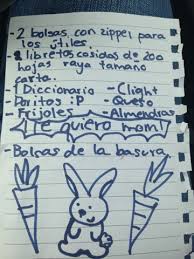 - 2 bolsas con zippel para
los útiles
- 2 libretas cosidas de 200
hojas raya tamaño
carta.
- 1 Diccionario - Clight
- Doritos :P - Queso
- Frijoles - Almendras
¡Te quiero mom!
- Bolsas de la basura